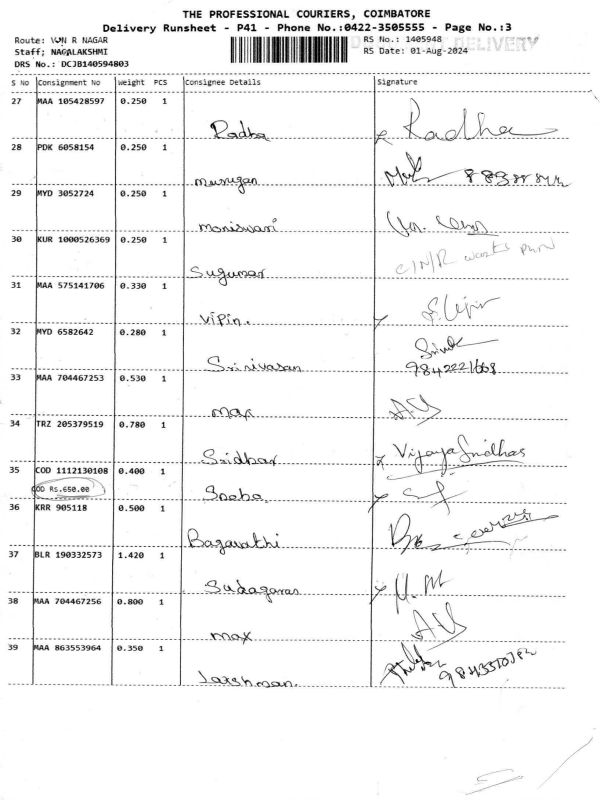 THE PROFESSIONAL COURIERS, COIMBATORE
Delivery Runsheet - P41 - Phone No.:0422-3505555 - Page No.:3
Route: VON R NAGAR
RS No.: 1405948
DELIVERY
Staff; NAGALAKSHMI
RS Date: 01-Aug-2024
DRS No.: DCJB140594803
S No Consignment No Weight PCS Consignee Details Signature
27 MAA 105428597 0.250 1
Radha Radha
28 PDK 6058154 0.250 1
Murugan
29 MYD 3052724 0.250 1
Moniswari
30 KUR 1000526369 0.250 1
Sugumar
31 MAA 575141706 0.330 1
Vipin.
32 MYD 6582642 0.280 1
Srinivasan
33 MAA 704467253 0.530 1
max
34 TRZ 205379519 0.780 1
Sridhar VijayaSridhar
35 COD 1112130108 0.400 1
COD Rs.650.00 Sneha
36 KRR 905118 0.500 1
Bagavathi
37 BLR 190332573 1.420 1
Sudagaran
38 MAA 704467256 0.800 1
max
39 MAA 863553964 0.350 1
Lakshman.